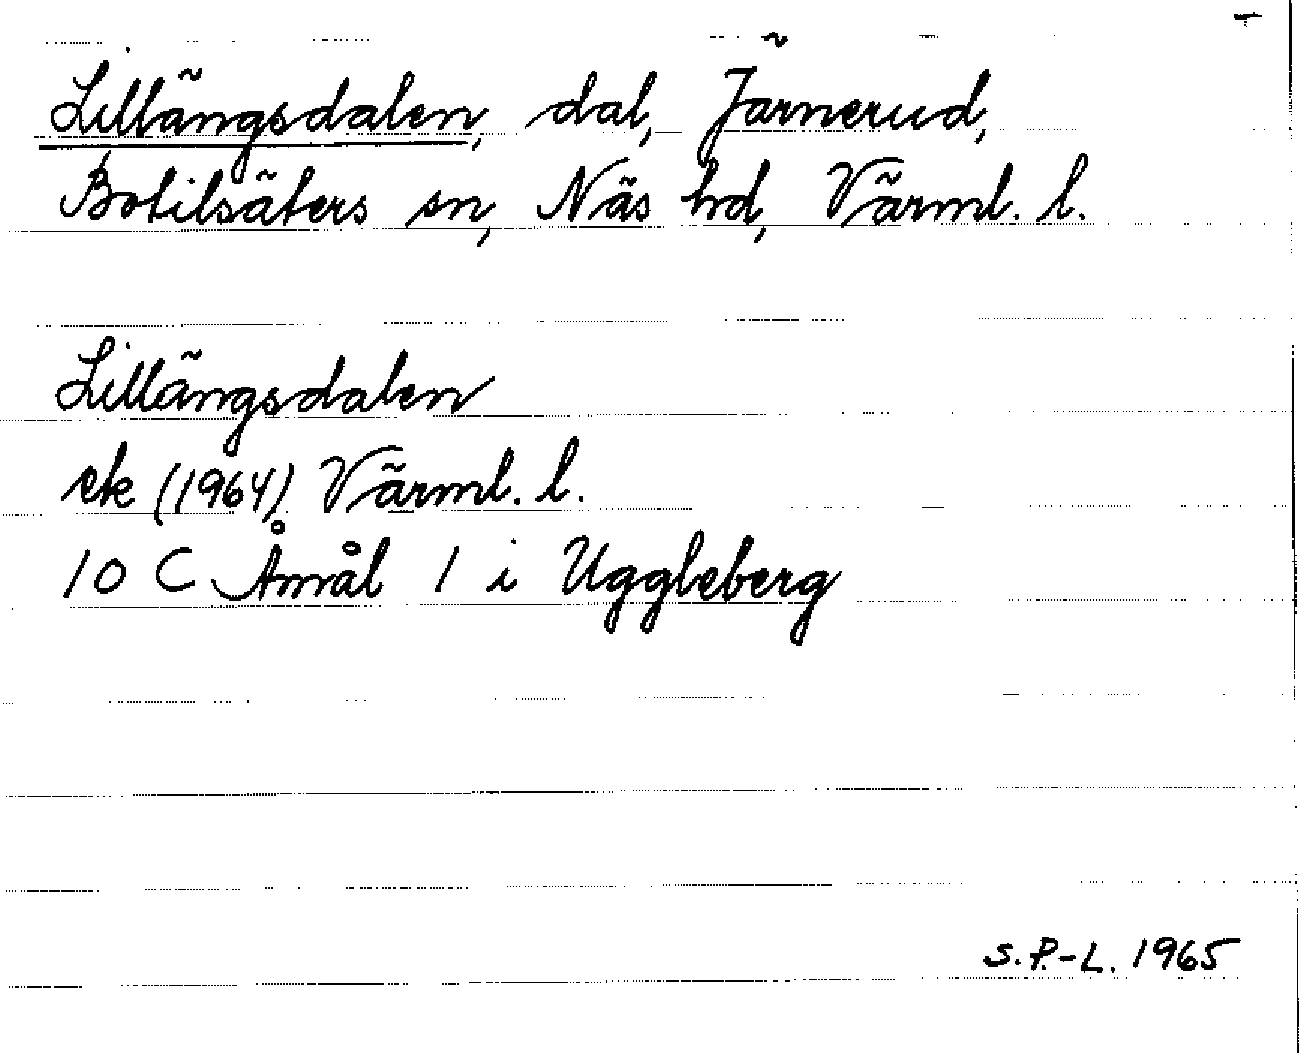 Lillängsdalen, dal, Järnerud,
Botilsäters sn, Näs hd, Värml. l.
Lillängsdalen
ek (1964) Värml. l.
10 C Åmål 1 i Uggleberg
S.P.-L. 1965